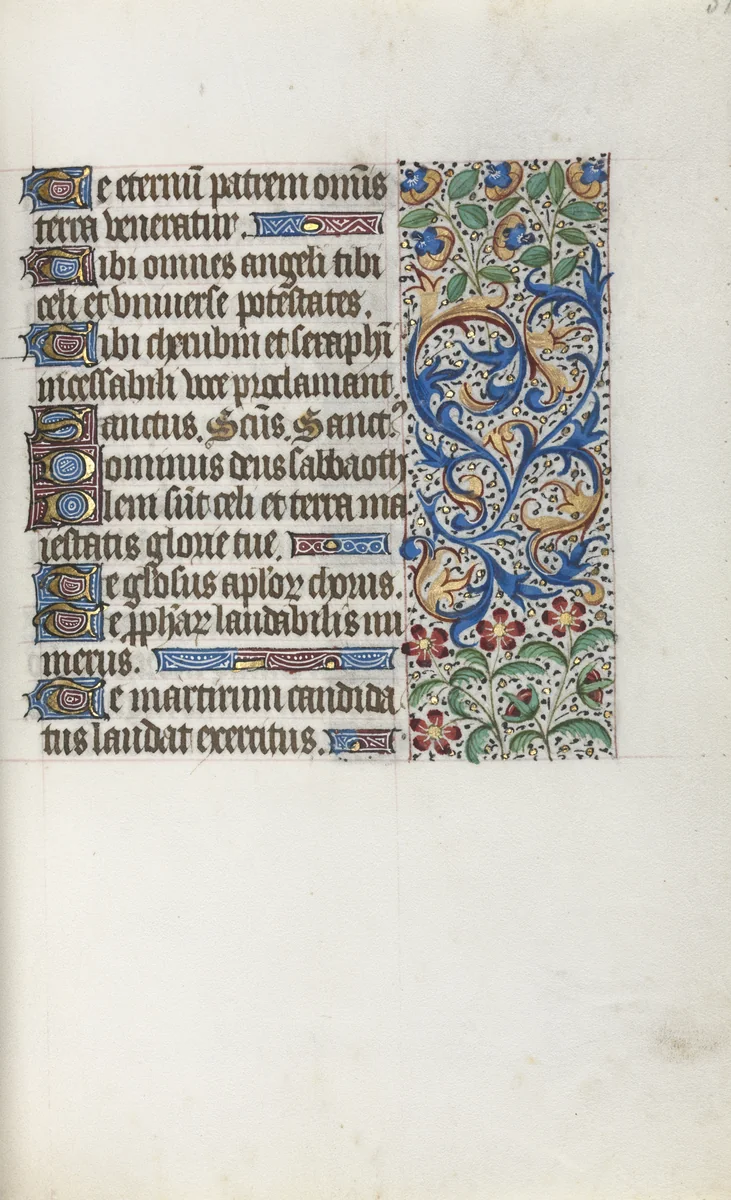 Te eternū patrem om̄is
terra veneratur.
Tibi omnes angeli tibi
celi et vniuerse potestates.
Tibi cherubin et seraphī
incessabili voce proclamant
Sanctus. Scūs. Sanctꝰ
Dominus deus sabbaoth
Pleni sūt celi et terra ma
iestatis glorie tue.
Te gl̄osus apl̄oꝝ chorus.
Te ꝓph̄aꝝ laudabilis nu
merus.
Te martirum candida
tus laudat exercitus.